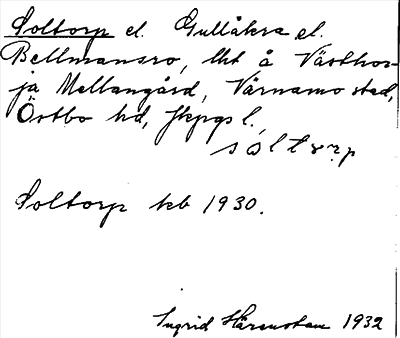 Soltorp el. Gullåkra el.
Bellmansro, lht å Västhor-
ja Mellangård, Värnamo stad,
Östbo hd, Jkpgs l.
sɑ̀ltɤrp
Soltorp kb 1930.
Ingrid Härenstam 1932